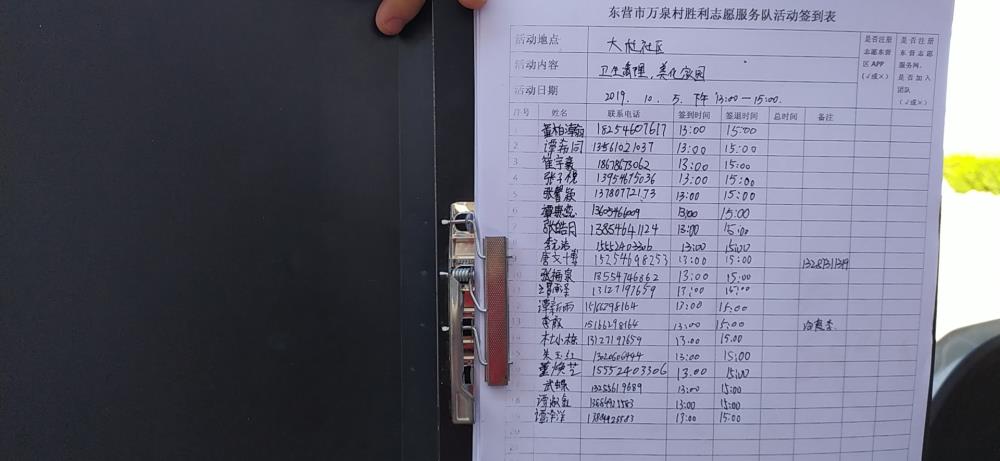 东营市万泉村胜利志愿服务队活动签到表
活动地点 大杜社区 是否注册志愿东营区APP(√或×) 是否注册东营志愿服务网,是否加入团队(√或×)
活动内容 卫生清理,美化家园
活动日期 2019.10.5.下午13:00—15:00.
序号 姓名 联系电话 签到时间 签退时间 总时间 备注
1 董柏 18254607617 13:00 15:00
2 13561021037 13:00 15:00
3 崔宇豪 18678673062 13:00 15:00
4 张子 13954675036 13:00 15:00
5 张馨颖 13780772173 13:00 15:00
6 13605466009 13:00 15:00
7 张皓月 13854641124 13:00 15:00
8 李 15552403306 13:00 15:00
9 唐文博 15254698253 13:00 15:00
10 张 泉 13554746862 13:00 15:00
13127197659 13:00 15:00
谭新雨 15166298164 13:00 15:00
13 李 15166298164 13:00 15:00
杜小栋 13127197659 13:00 15:00
吴玉红 13:00 15:00
董焕芝 15552403306 13:00 15:00
武蝶 13255619689 13:00 15:00
18 谭 13:00 15:00
谭泽洋 13:00 15:00
20